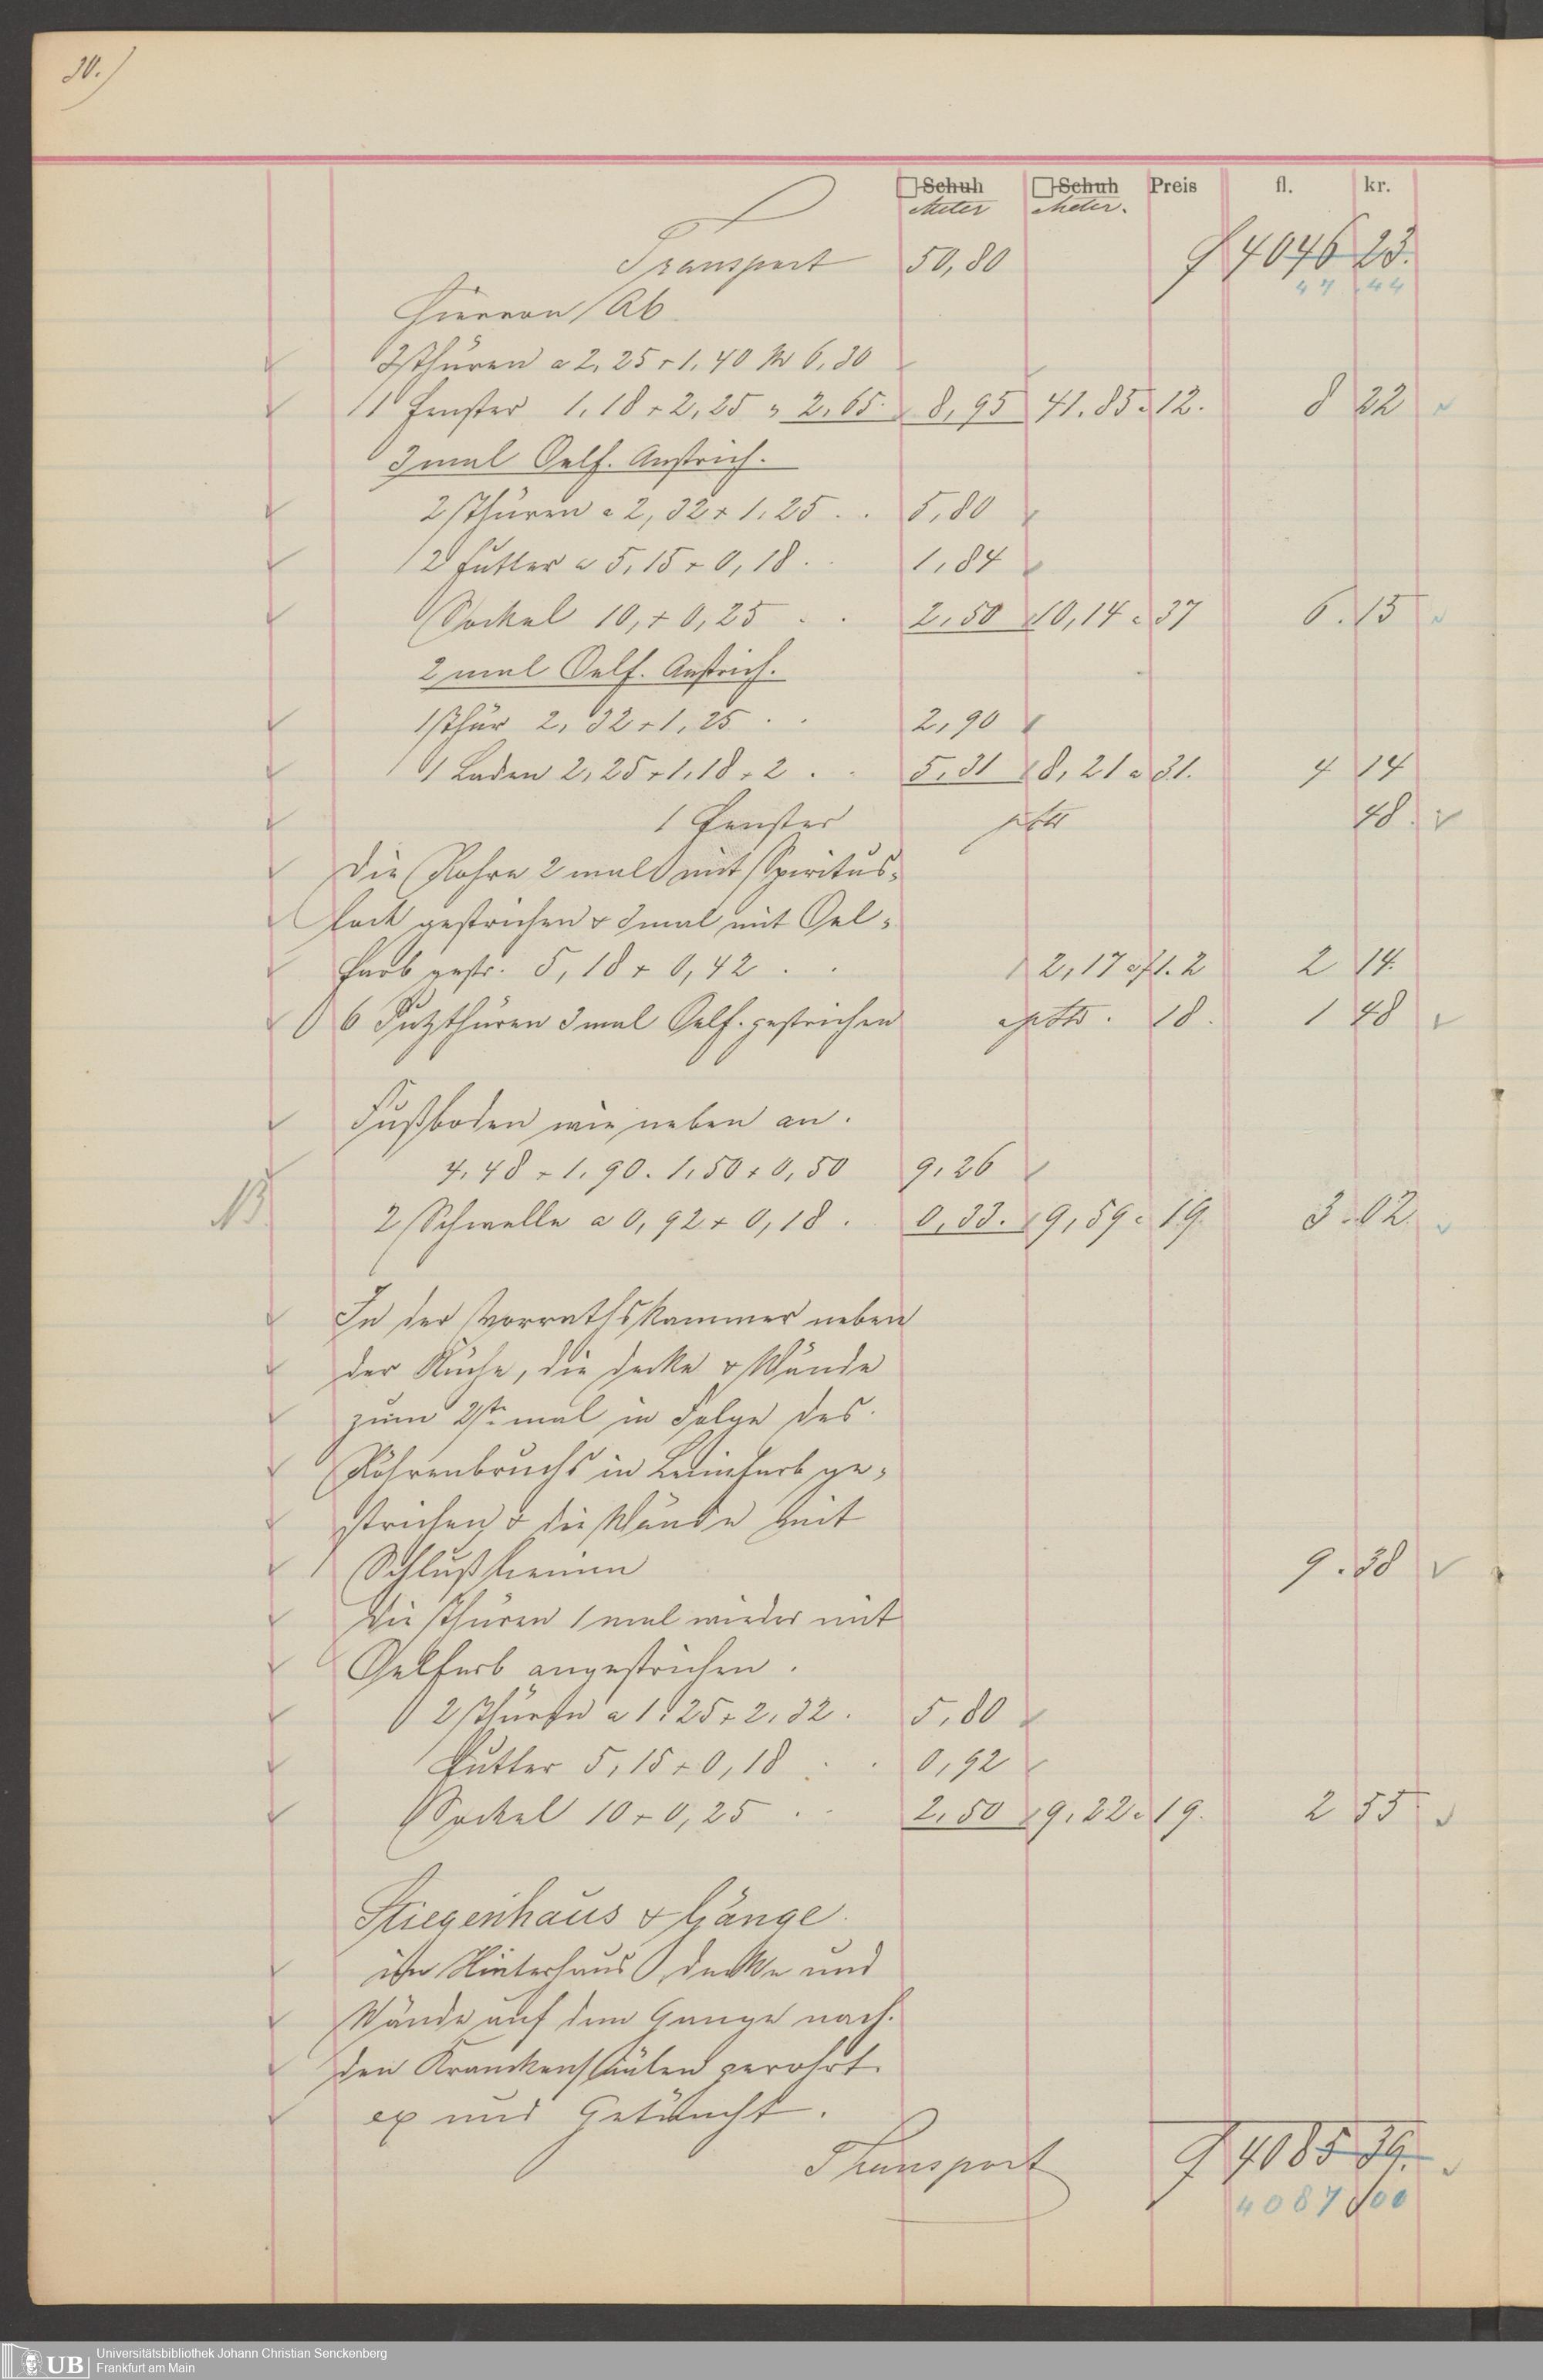 30.)
□Schuh □Schuh Preis fl. kr.
Meter Meter.
Transport 50,80 f 4046 23.
47 44
Hiervon Ab
2 Thüren a 2,25 + 1,40 6,30
1 Fenster 1,18 + 2,25 2,65. 8,95 41.85 a 12. 8 22
3 mal Oelf. Anstrich.
2 Thüren a 2,32 + 1,25 . . 5,80
2 Futter a 5,15 + 0,18 . . 1,84
Sockel 10, + 0,25 . . 2,50 10,14 a 37 6.15
2 mal Oelf. Anstrich.
1 Thür 2,32 + 1,25 . . 2,90
1 Laden 2,25 + 1,18 + 2 . . 5,31 8,21 a 31. 4 14
1 Fenster 48.
Die Rohre 2 mal mit Spiritus-
lack gestrichen & 3mal mit Oel-
farb gestr. 5,18 + 0,42 . . 2,17 a f1.2 2 14.
6 Putzthüren 3 mal Oelf. gestrichen 18. 1 48
Fußboden wie neben an.
4,48 + 1,90. 1,50 + 0,50 9,26
2 Schwelle a 0,92 + 0,18 . 0,33. 9,59 a 19. 3.02.
In der Vorrathskammer neben
der Küche, die Decke & Wände
zum 2ten mal in Folge des
Röhrenbruchs in Leimfarb ge-
strichen & die Wände mit
Schluß 9.38
Die Thüren 1 mal wieder mit
Oelfarb angestrichen.
2 Thüren a 1,25 + 2,32 . 5,80
Futter 5,15 + 0,18 . . 0,92
Sockel 10 + 0,25 . . 2,50 9,22 a 19. 2 55
Stiegenhaus & Gänge.
im Hinterhaus, Decke und
Wände auf dem Gange nach
den Krankensäälen gerohrt
und Getüncht.
Transport f 4085 39.
4087 00
UB
Universitätsbibliothek Johann Christian Senckenberg
Frankfurt am Main